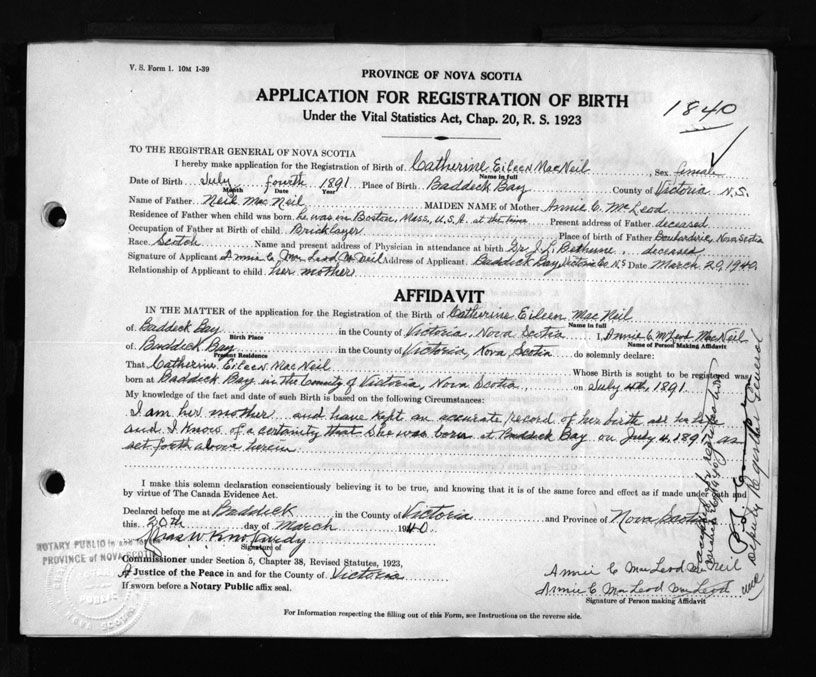 V. S. Form 1. 10M 1-39
PROVINCE OF NOVA SCOTIA
APPLICATION FOR REGISTRATION OF BIRTH
Under the Vital Statistics Act, Chap. 20, R. S. 1923
1840
TO THE REGISTRAR GENERAL OF NOVA SCOTIA
I hereby make application for the Registration of Birth of Catherine Eileen MacNeil Sex female
Name in full
Date of Birth July fourth 1891 Place of Birth Baddeck Bay County of Victoria N.S.
Month Date Year
Name of Father Neil MacNeil MAIDEN NAME of Mother Annie C. McLeod
Residence of Father when child was born he was in Boston, Mass, U.S.A. at the time Present address of Father deceased
Occupation of Father at Birth of child Bricklayer Place of birth of Father Boularderie, Nova Scotia
Race Scotch Name and present address of Physician in attendance at birth Dr. J. L. Bethune, deceased
Signature of Applicant Annie C. McLeod McNeil Address of Applicant Baddeck Bay Victoria Co. N.S Date March 20, 1940
Relationship of Applicant to child her mother
AFFIDAVIT
IN THE MATTER of the application of the Registration of the Birth of Catherine Eileen MacNeil
Name in full
of Baddeck Bay in the County of Victoria, Nova Scotia I, Annie C. McLeod MacNeil
Birth Place Name of Person Making Affidavit
of Baddeck Bay in the County of Victoria, Nova Scotia do solemnly declare:
Present Residence
That Catherine Eileen MacNeil Whose Birth is sought to be registered was
born at Baddeck Bay in the County of Victoria, Nova Scotia, on July 4th, 1891
My knowledge of the fact and date of such Birth is based on the following Circumstances:
I am her mother and have kept an accurate record of her birth all her life
and I know of a certainty that she was born at Baddeck Bay on July 4 1891 as
set forth above herein
I make this solemn declaration conscientiously believing it to be true, and knowing that it is of the same force and effect as if made under oath and
by virtue of The Canada Evidence Act.
Declared before me at Baddeck in the County of Victoria and Province of Nova Scotia
this 20th day of March 1940.
Signature of
NOTARY PUBLIC in and for the
PROVINCE of NOVA SCOTIA
Commissioner under Section 5, Chapter 38, Revised Statutes, 1923,
A Justice of the Peace in and for the County of Victoria
If sworn before a Notary Public affix seal.
Annie C MacLeod McNeil
Annie C MacLeod MacLeod
Signature of Person making Affidavit
For Information respecting the filling out of this Form, see Instructions on the reverse side.
Deputy Registrar General